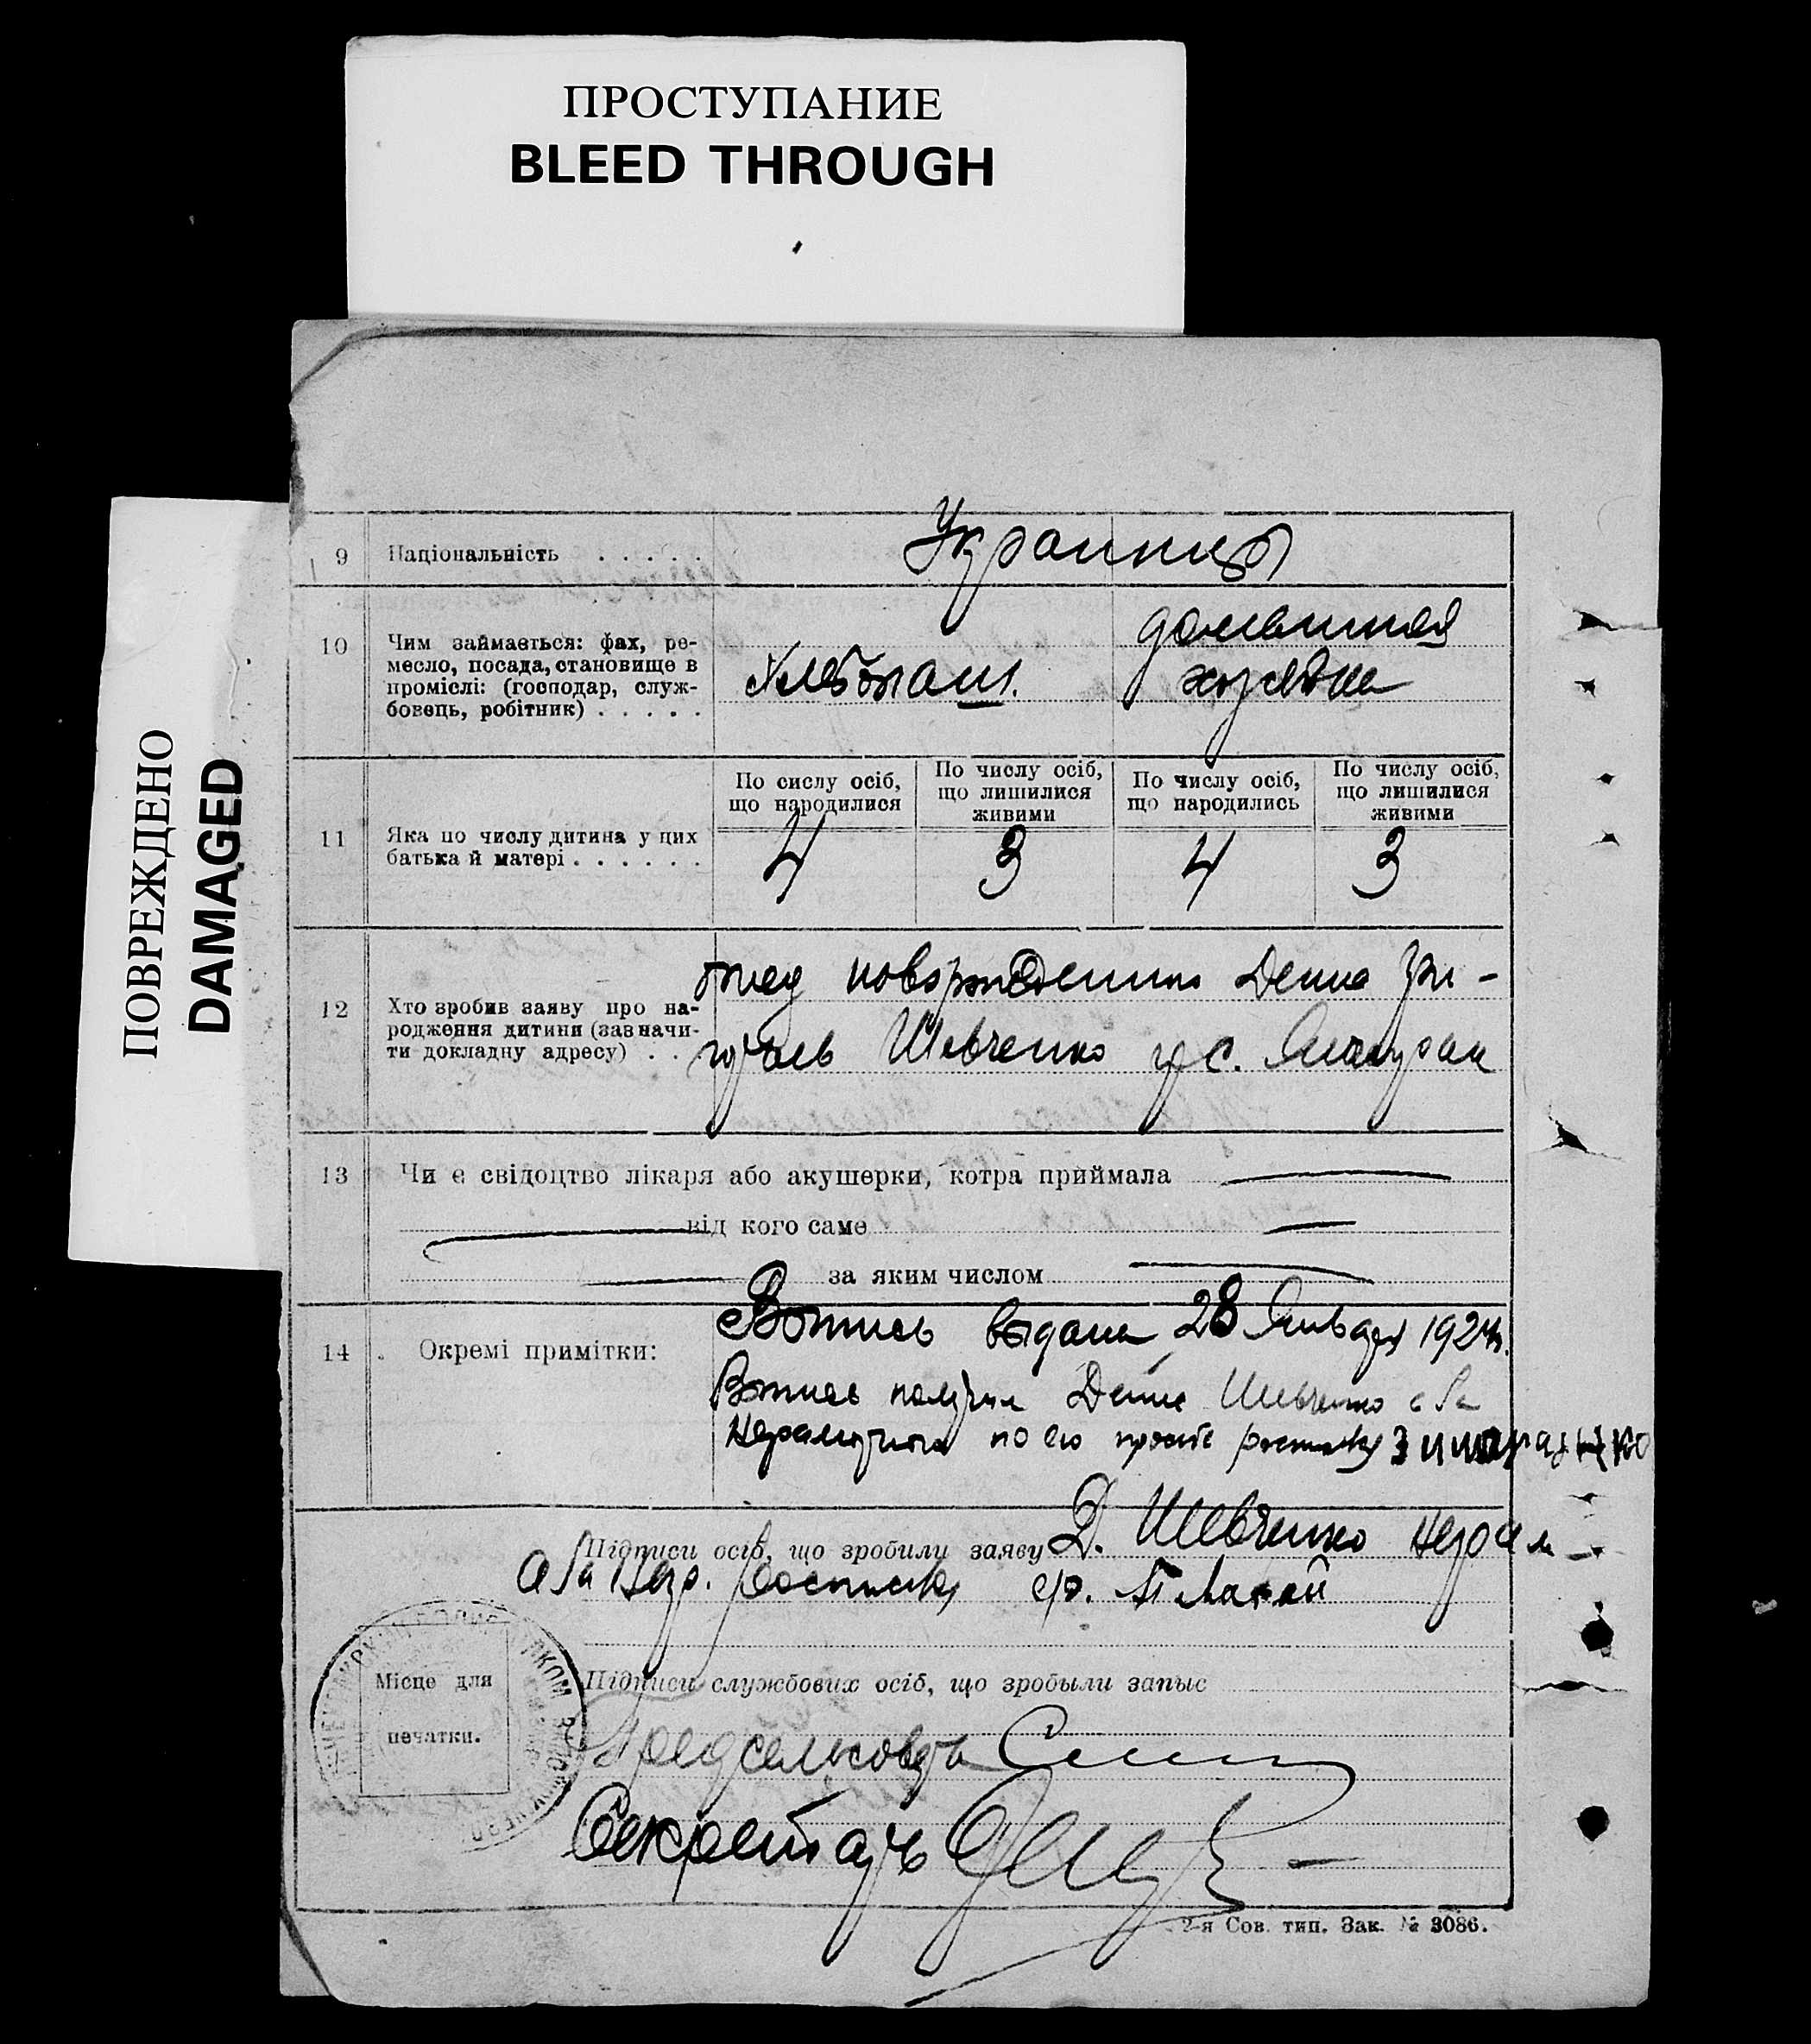 ПРОСТУПАНИЕ
BLEED THROUGH
ПОВРЕЖДЕНО
DAMAGED
9 Національність . . . . .
Украинцы
10 Чим займається: фах, ре-
месло, посада, становище в
проміслі: (господар, служ-
бовець, робітник) . . . . .
Хлебопаш.
домашняя
хозяйка
11 Яка по числу дитина у цих
батька й матері . . . . . .
По сислу осіб,
що народилися
4
По числу осіб,
що лишилися
живими
3
По числу осіб,
що народились
4
По числу осіб,
що лишилися
живими
3
12 Хто зробив заяву про на-
родження дитини (зазначи-
ти докладну адресу) . .
отец новорожденного Денис Гри-
горьев Шевченко
с.
13 Чи є свідоцтво лікаря або акушерки, котра приймала
від кого саме
за яким числом
14 . Окремі примітки:
Выпись выдана 28 Января 192
Выпись получил Денис Шевченко а за
по его просьбе
Підписи осіб, що зробили заяву Д. Шевченко
а за
Місце для
печатки.
Підписи службових осіб, що зробыли запыс
Предсельсовета
Секретарь
2-я Сов. тип. Зак. № 3086.